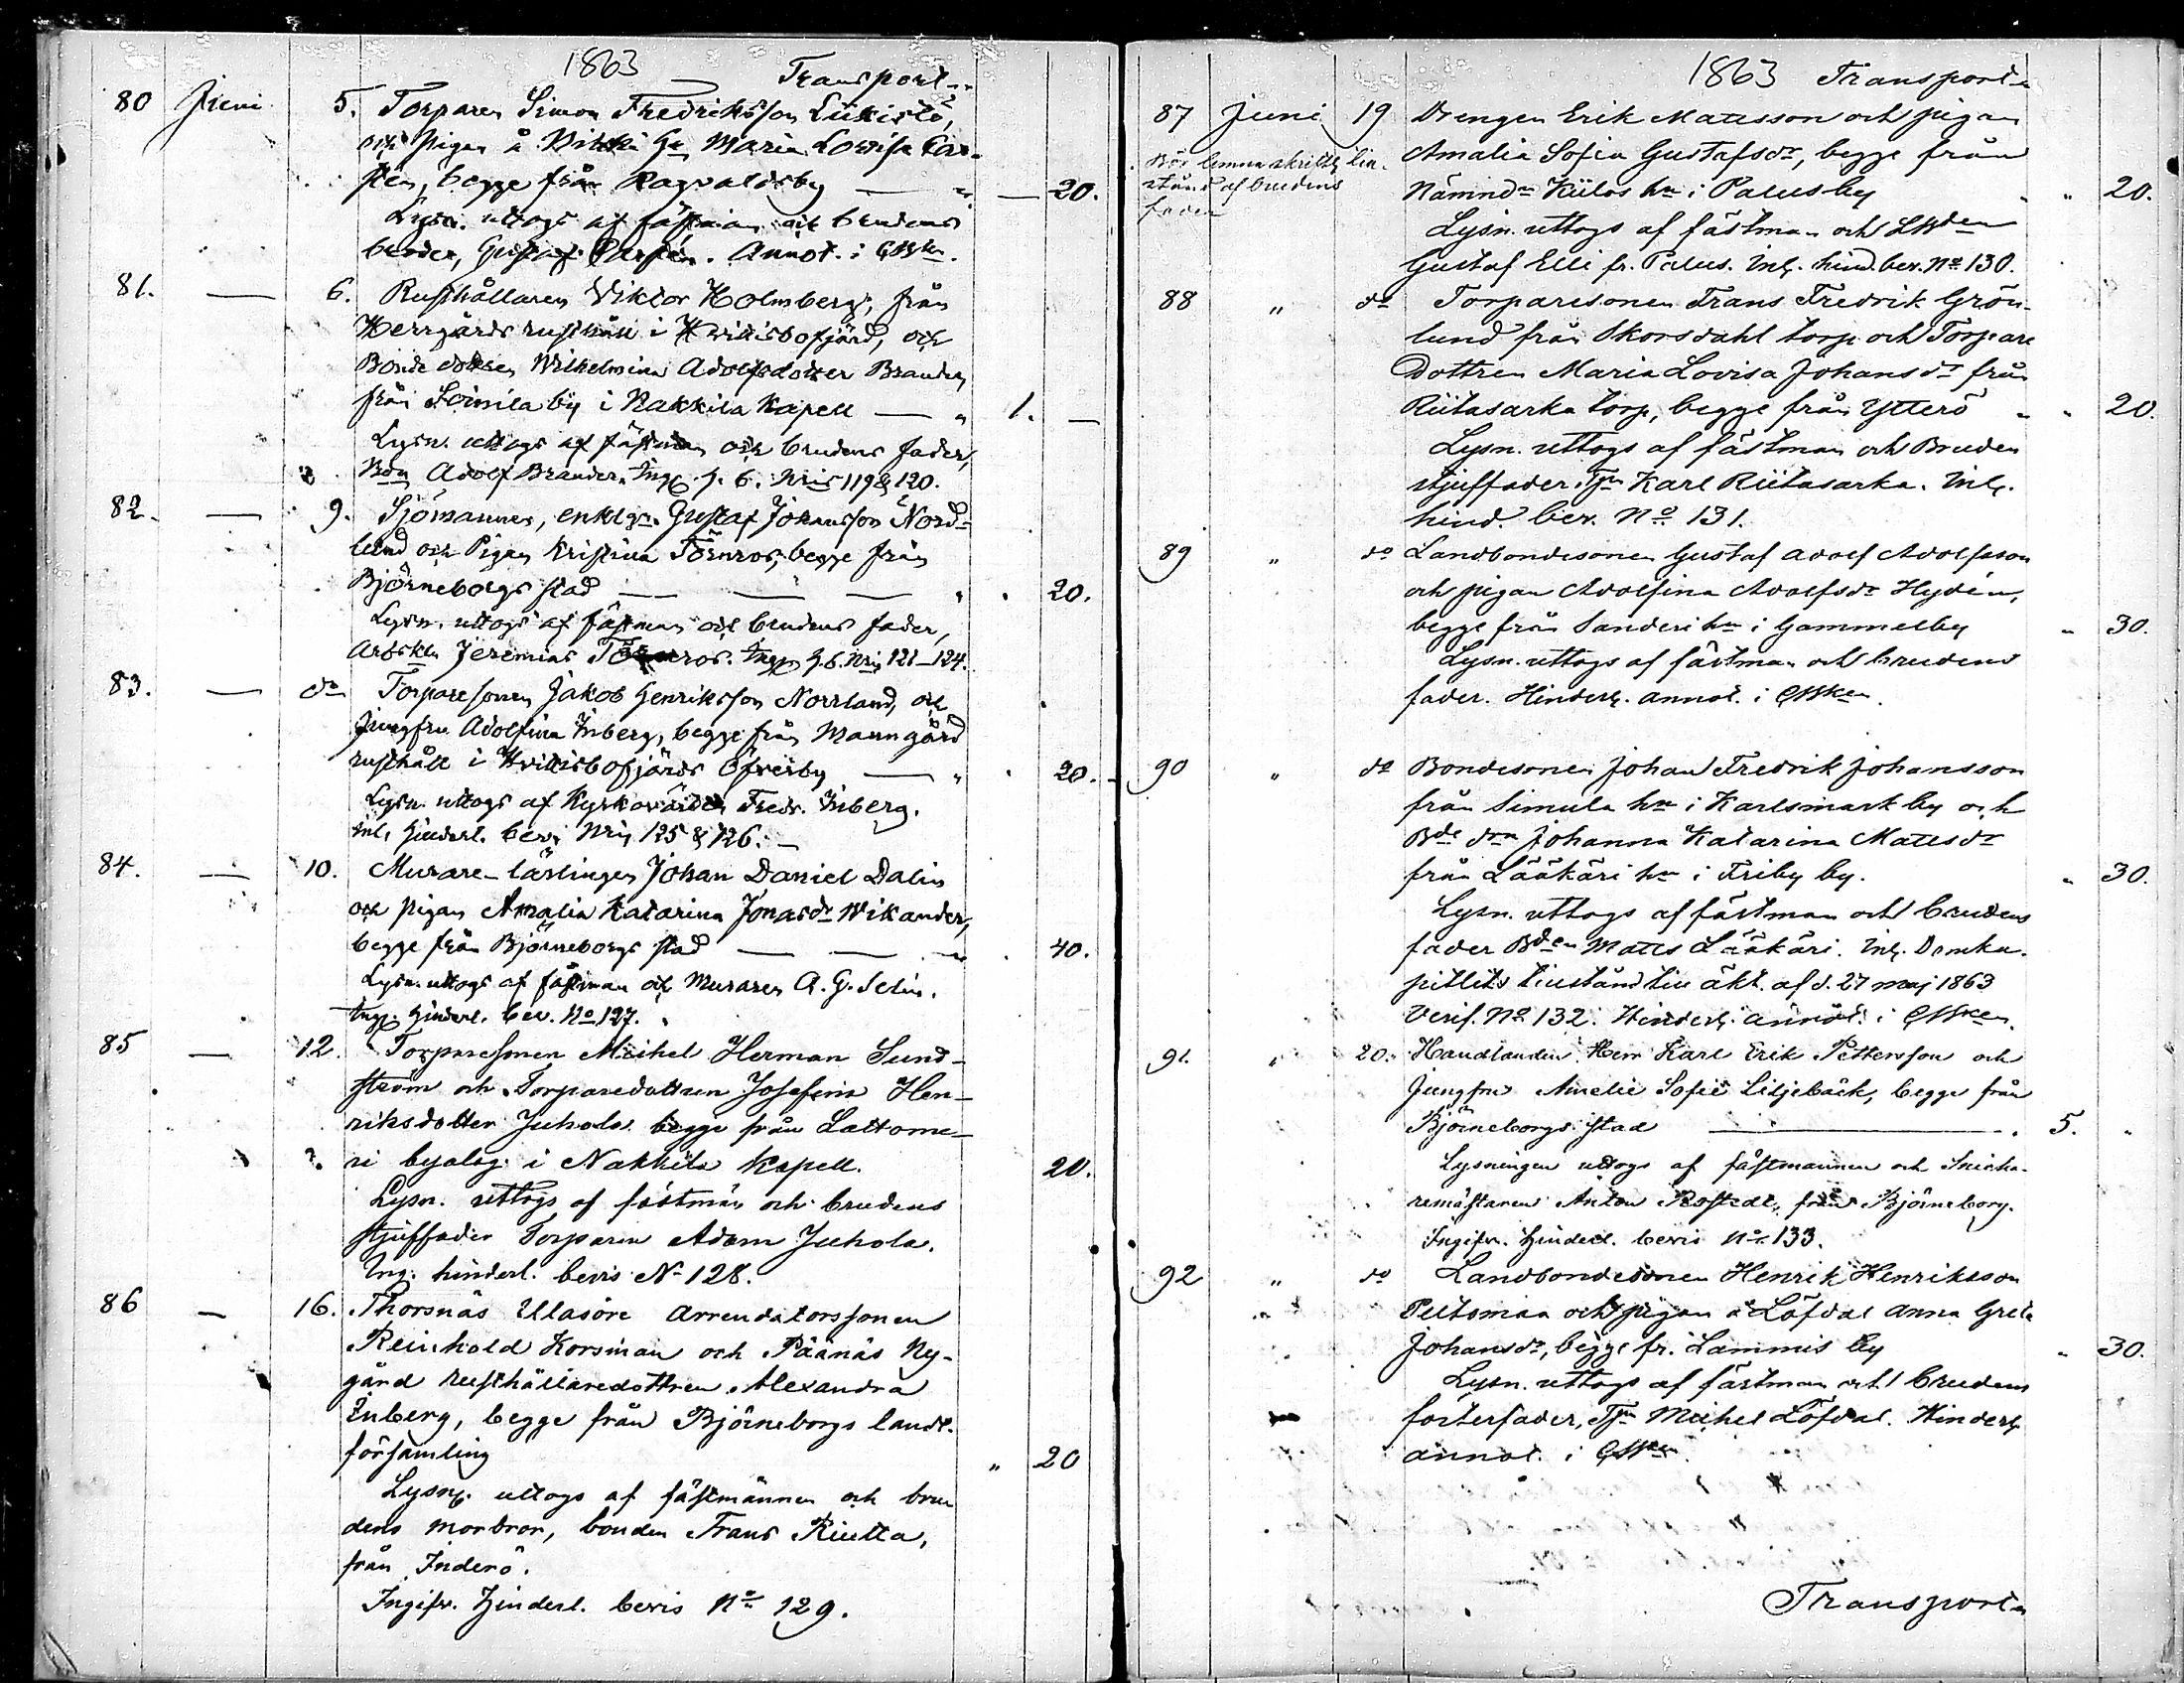 1863 Transport
80 Juni 5. Torparen Simon Fredriksson Liikistö,
och Pigan å Vitki Hn Maria Lovisa Cars-
ten, begge från Ragvaldsby — 20.
Lysn. uttogs af fästman och brudens
broder, Gustaf Carstén. Annot. i GBken.
81. — 6. Rusthållaren Viktor Holmberg, från
Herrgårds rusthåll i Hvittisbofjärd, och
Bonde dottren Wilhelmina Adolfsdotter Brander
från Soinila by i Nakkila Kapell — „ 1. —
Lysn. uttogs af fästman och brudens fader,
Bdn Adolf Brander. Ingg. h. b. Nris 119 & 120.
82. — 9. Sjömannen, enklgn. Gustaf Johansson Nord-
lund och Pigan Kristina Törnros, begge från
Björneborgs stad — — — „ 20.
Lysn. uttogs af fästman och brudens fader,
Arbskln Jeremias Törnros. Ingg. h. b. Nris 121–124.
83. — do Torparesonen Jakob Henriksson Norrland, och
Jungfru Adolfina Inberg, begge från Manngård
rusthåll i Hvittisbofjärds Öfverby — „ 20.
Lysn. uttogs af Kyrkovärden Fredr. Inberg.
Inl. hinderl. bevis Nris 125 & 126. —
84. — 10. Murare-lärlingen Johan Daniel Dalin
och pigan Amalia Katarina Jonasdr Wikander,
begge från Björneborgs stad — — 40.
Lysn. uttogs af fästman och Muraren A. G. Selin.
Ingg. hinderl. bev. No 127.
85 — 12. Torparesonen Michel Herman Sund-
ström och Torparedottren Josefina Hen-
riksdotter Juhola begge från Lattome-
ri byalag i Nakkila Kapell. 20.
Lysn. uttogs af fästman och brudens
styffader Torparen Adam Juhola.
Ing. hinderl. bevis No 128.
86 — 16. Thorsnäs Ulasöre arrendatorssonen
Reinhold Korsman och Påånäs Ny-
gård rusthållaredottren Alexandra
Inberg, begge från Björneborgs landt-
församling „ 20
Lysng. uttogs af fästmannen och bru
dens morbror, bonden Frans Riutta,
från Inderö.
Ingifv. hinderl. bevis No 129.
1863 Transport
87 Juni 19 Drengen Erik Matsson och pigan
Amalia Sofia Gustafsdr, begge från
Nämndn Kiilos hn i Palus by „ „ 20.
Bör lemna skriftlig till-
stånd af brudens
fader
Lysn. uttogs af fästman och LBden
Gustaf Elli fr. Palus. Inl. hind. bev. No 130.
88 „ do Torparesonen Frans Fredrik Grön-
lund från Skorsdahl torp och Torpare
Dottren Maria Lovisa Johansdr från
Riitasarka torp, begge från Ytterö „ „ 20.
Lysn. uttogs af fästman och Bruden
styffader Tpn Karl Riitasarka. Inl.
hind. bev. No 131.
89 „ do Landbondesonen Gustaf Adolf Adolfsson
och pigan Adolfina Adolfsdr Hydén,
begge från Sanderi hn i Gammelby „ 30.
Lysn. uttogs af fästman och brudens
fader. Hinderl. annot. i GBken.
90 „ do Bondesonen Johan Fredrik Johansson
från Simula hn i Karlsmark by och
Bde drn Johanna Katarina Matsdr
från Lääkäri hn i Friby by. „ 30.
Lysn. uttogs af fästman och brudens
fader Bden Matts Lääkäri. Inl. Domka-
pitlets tillstånd till äkt. af d. 27 maj 1863
Verif. No 132. Hinderl. annot. i GBken.
91. „ 20. Handlanden Herr Karl Erik Pettersson och
Jungfru Amelie Sofie Liljebäck, begge från
Björneborgs stad — 5. „
Lysningen uttogs af fästmannen och Snicka-
remästaren Anton Rostedt, från Björneborg.
Ingifv. hinderl. bevis No 133.
92 „ do Landbondesonen Henrik Henriksson
Peltomaa och pigan å Löfdal Anna Greta
Johansdr, begge fr. Lammis by „ 30.
Lysn. uttogs af fästman och brudens
fosterfader, Tpn Michel Löfdal. Hinderl.
annot. i GBken.
Transport